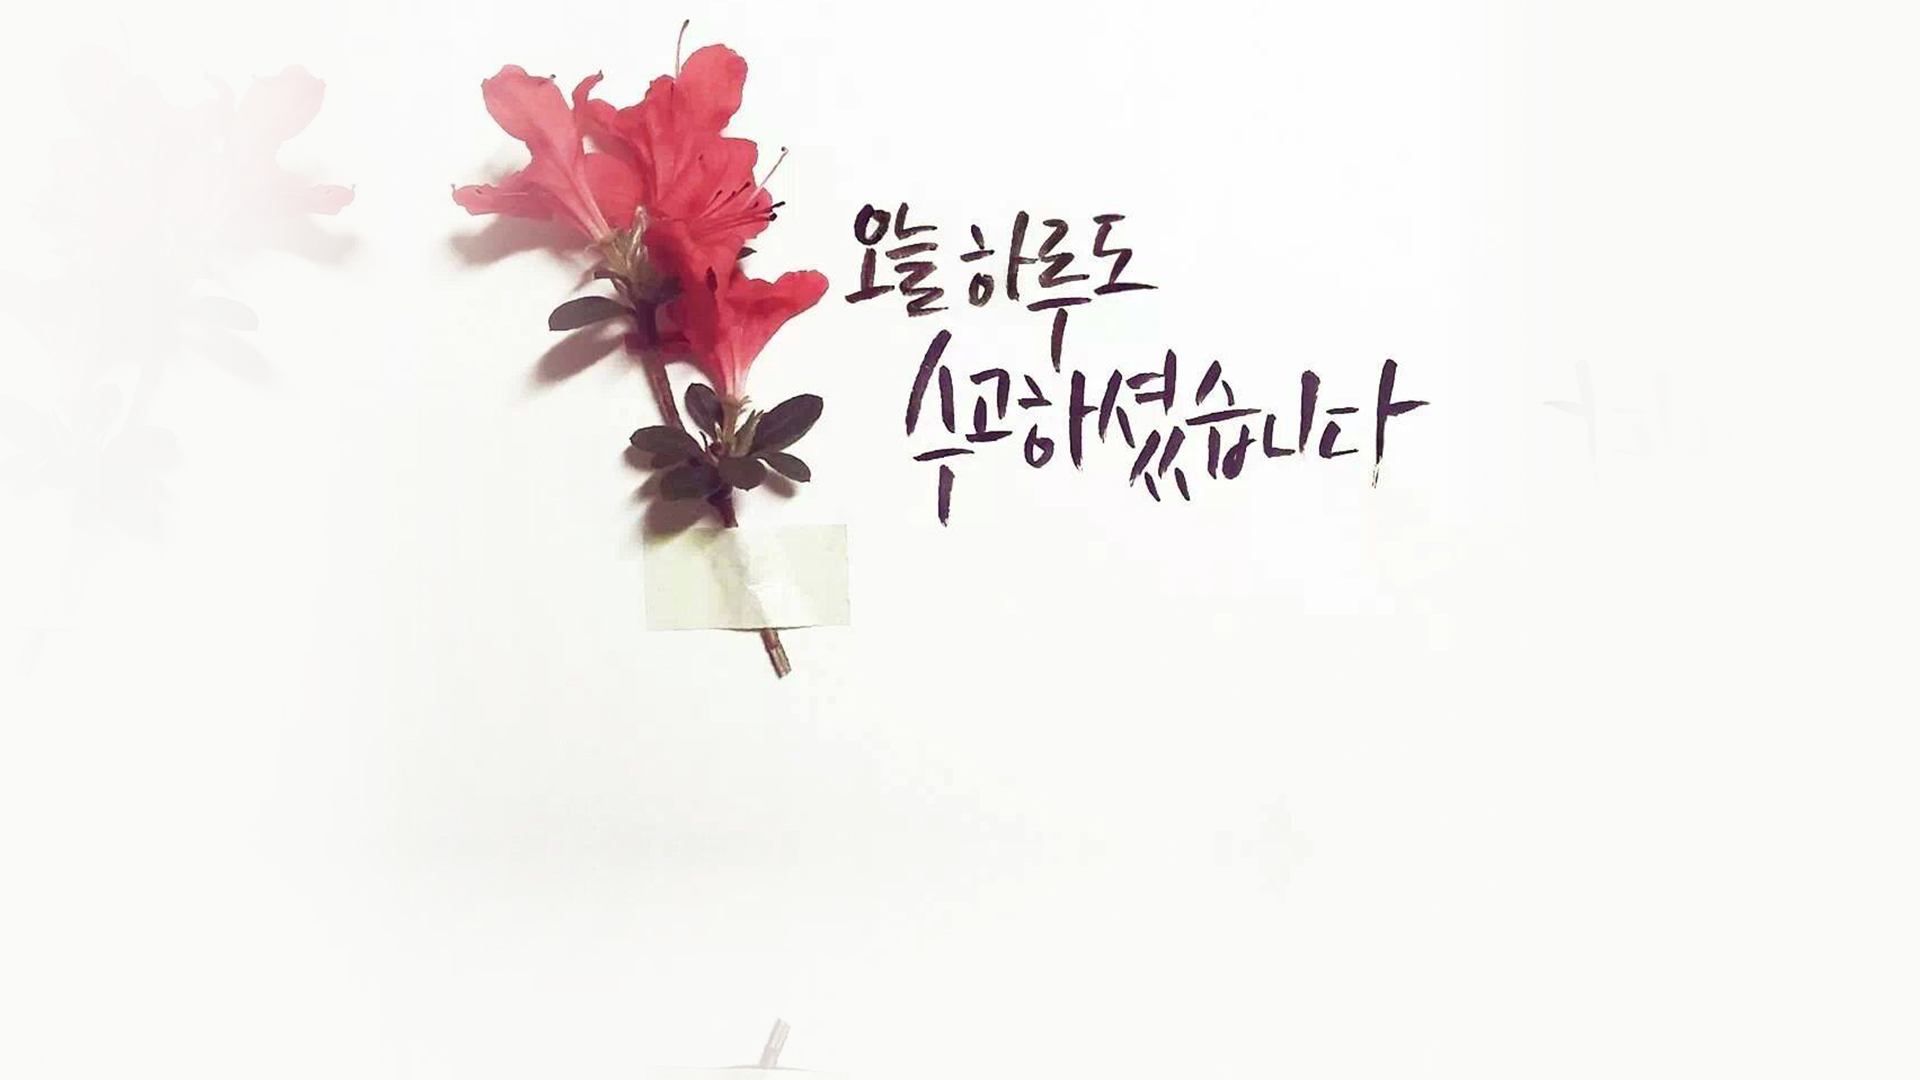 오늘 하루도
수고하셨습니다